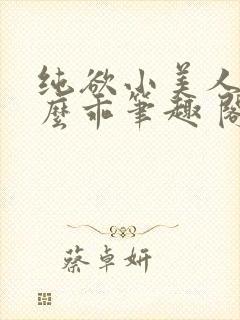 纯欲小美人
麽乖笔趣阁
蔡卓妍